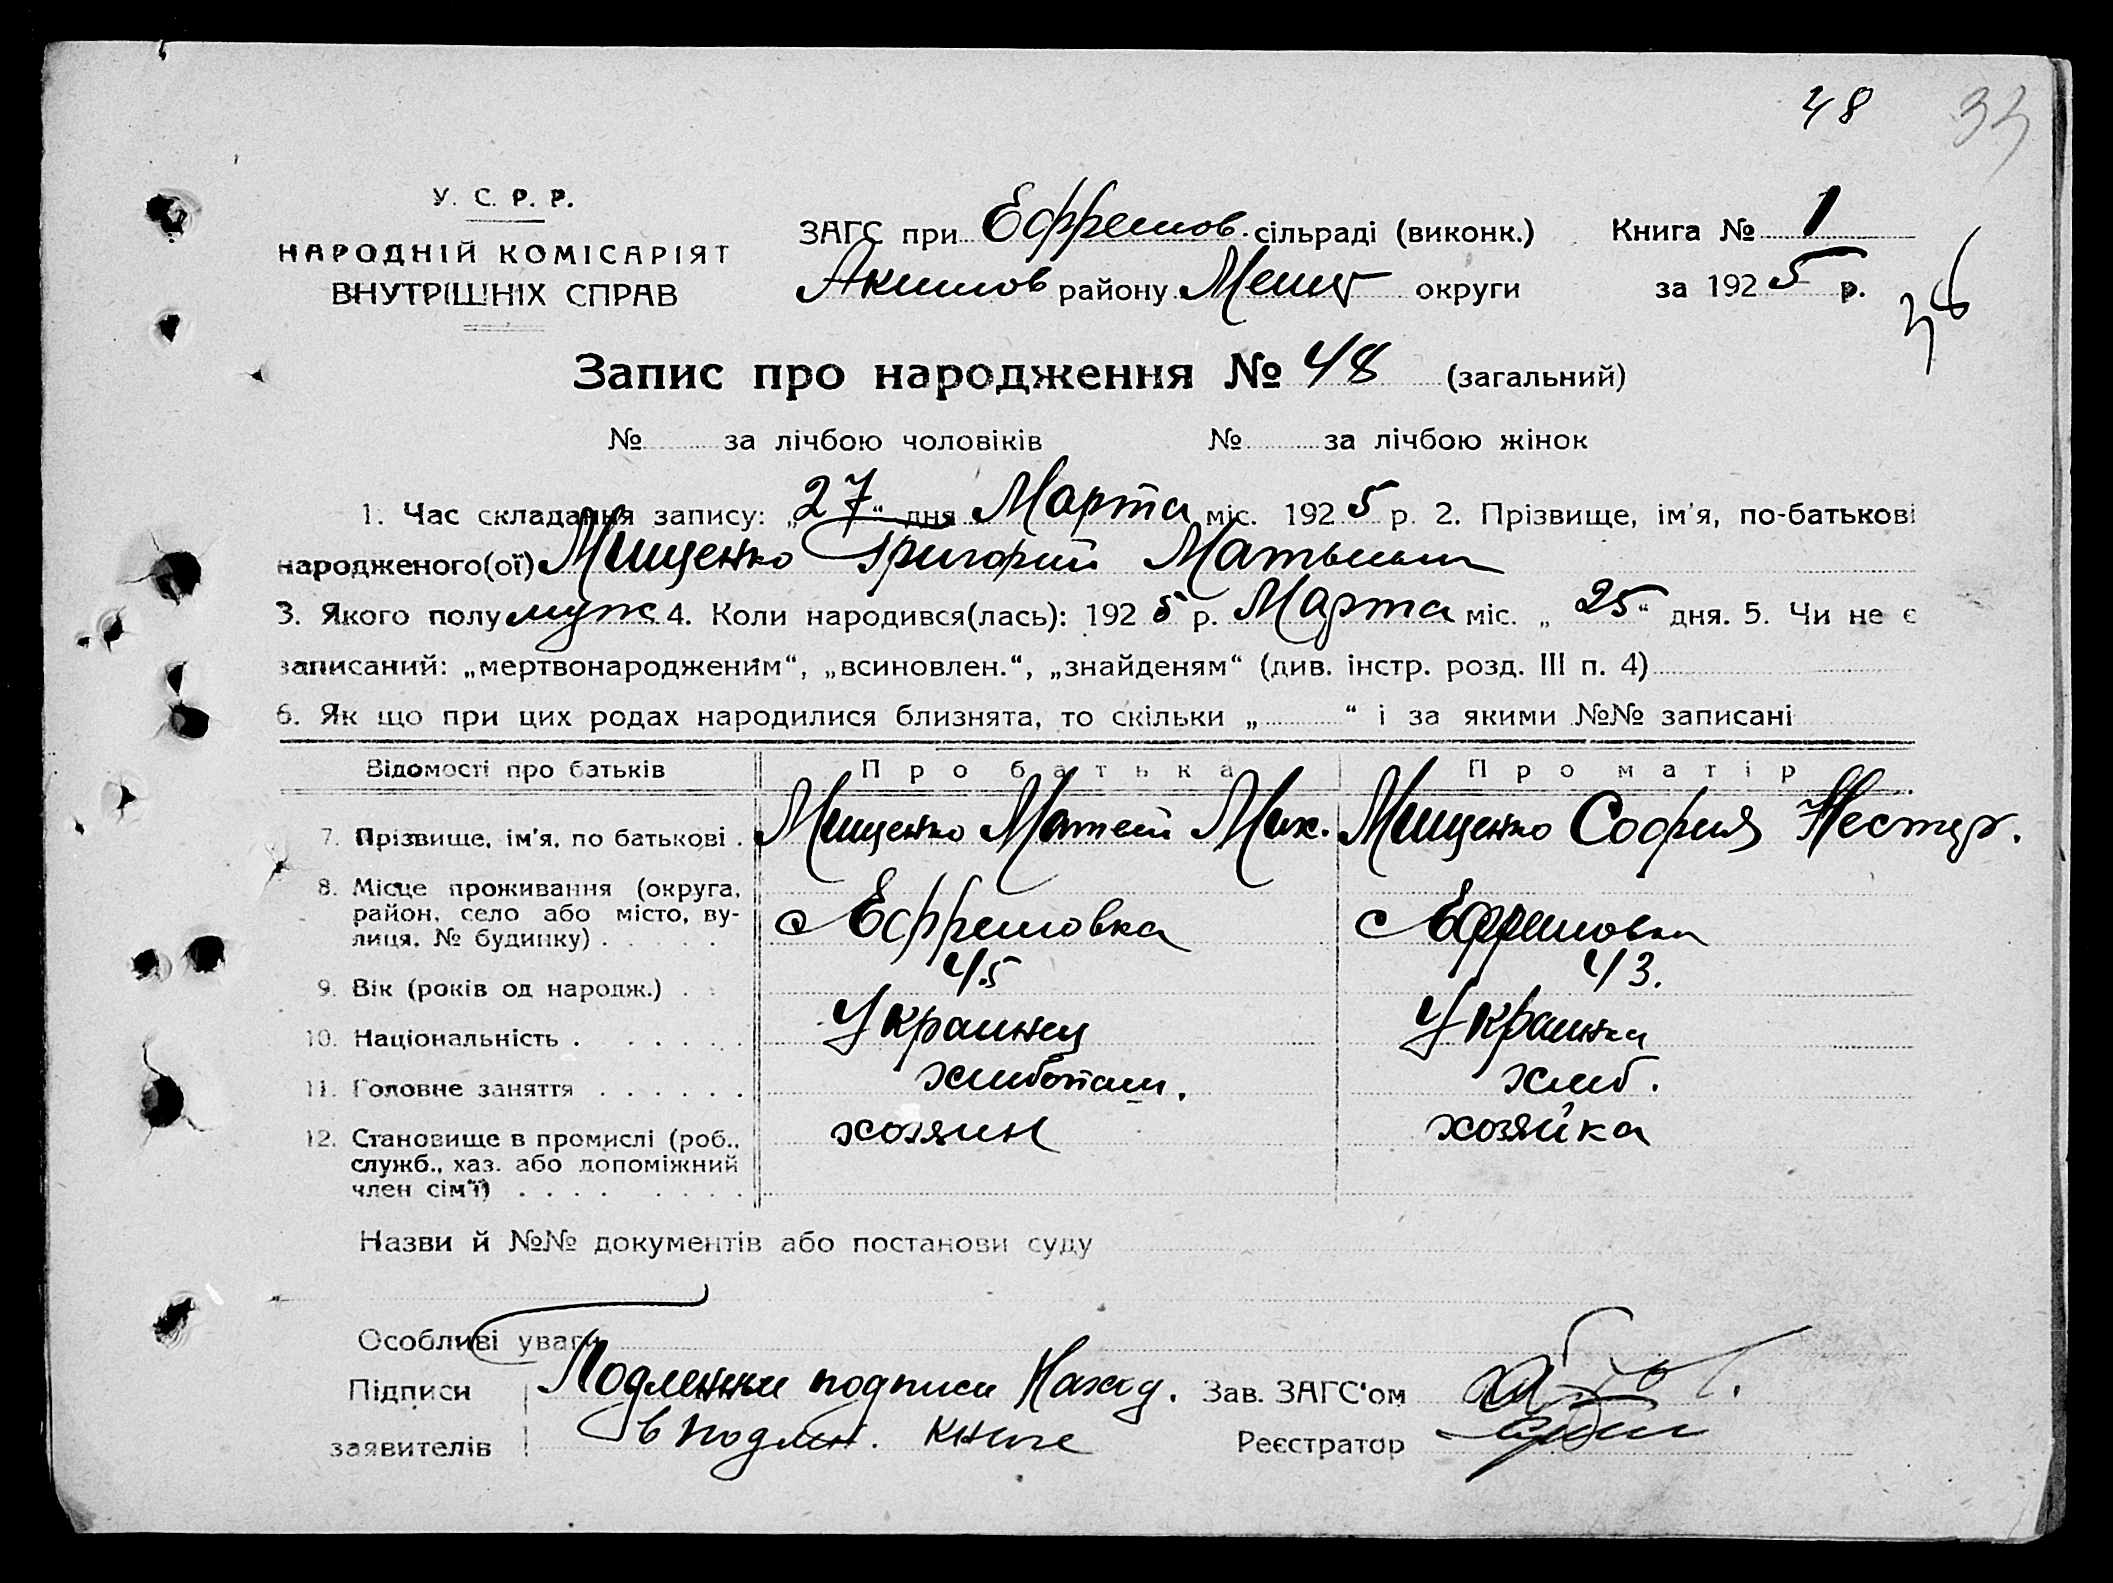 48
У. С. Р. Р.
НАРОДНІЙ КОМІСАРІЯТ
ВНУТРІШНІХ СПРАВ
ЗАГС при Ефремов. сільраді (виконк.) Книга № 1
Акимов району Мелит округи за 1925 р.
Запис про народження № 48 (загальний)
№ за лічбою чоловіків № за лічбою жінок
1. Час складання запису: „27“ дня Марта міс. 1925 р. 2. Прізвище, ім'я, по-батькові
народженого(ої) Мищенко Григорий
3. Якого полу муж 4. Коли народився(лась): 1925 р. Марта міс. „25“ дня. 5. Чи не є
записаний: „мертвонародженим“, „всиновлен.“, „знайденям“ (див. інстр. розд. III п. 4)
6. Як що при цих родах народилися близнята, то скільки „ “ і за якими №№ записані
Відомості про батьків Про батька Про матір
7. Прізвище, ім'я, по батькові . Мищенко Матвей Мих. Мищенко София Нестер.
8. Місце проживання (округа,
район, село або місто, ву-
лиця, № будинку) . . . . . с Ефремовка с Ефремовка
9. Вік (років од народж.) . . 45 43.
10. Національність . . . . . . Украинец Украинка
11. Головне заняття . . . . . . хлибопаш. хлиб.
12. Становище в промислі (роб., хозяин хозяйка
служб., хаз. або допоміжний
член сім'ї) . . . . . . . .
Назви й №№ документів або постанови суду
Особливі уваги
Підписи Подленные подписи Наход. Зав. ЗАГС'ом
заявителів в подлин. книге Реєстратор